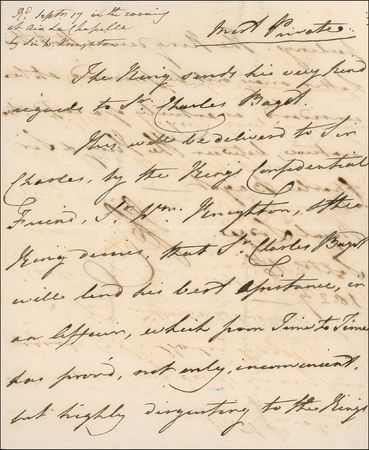 Rd. Septr. 17 in the evening
at Aix La Chapelle
by Sir W. Knighton
most Private.
The King sends his very kind
regards to Sr. Charles Bagot.
This will be deliverd to Sir
Charles, by the King's Confidential
Friend, Sr. Wm. Knighton, & the
King desires, that Sr. Charles Bagot
will lend his best Assistance, in
an Affair, which from Time to Time
has prov'd, not only, inconvenient,
but highly disgusting to the King's